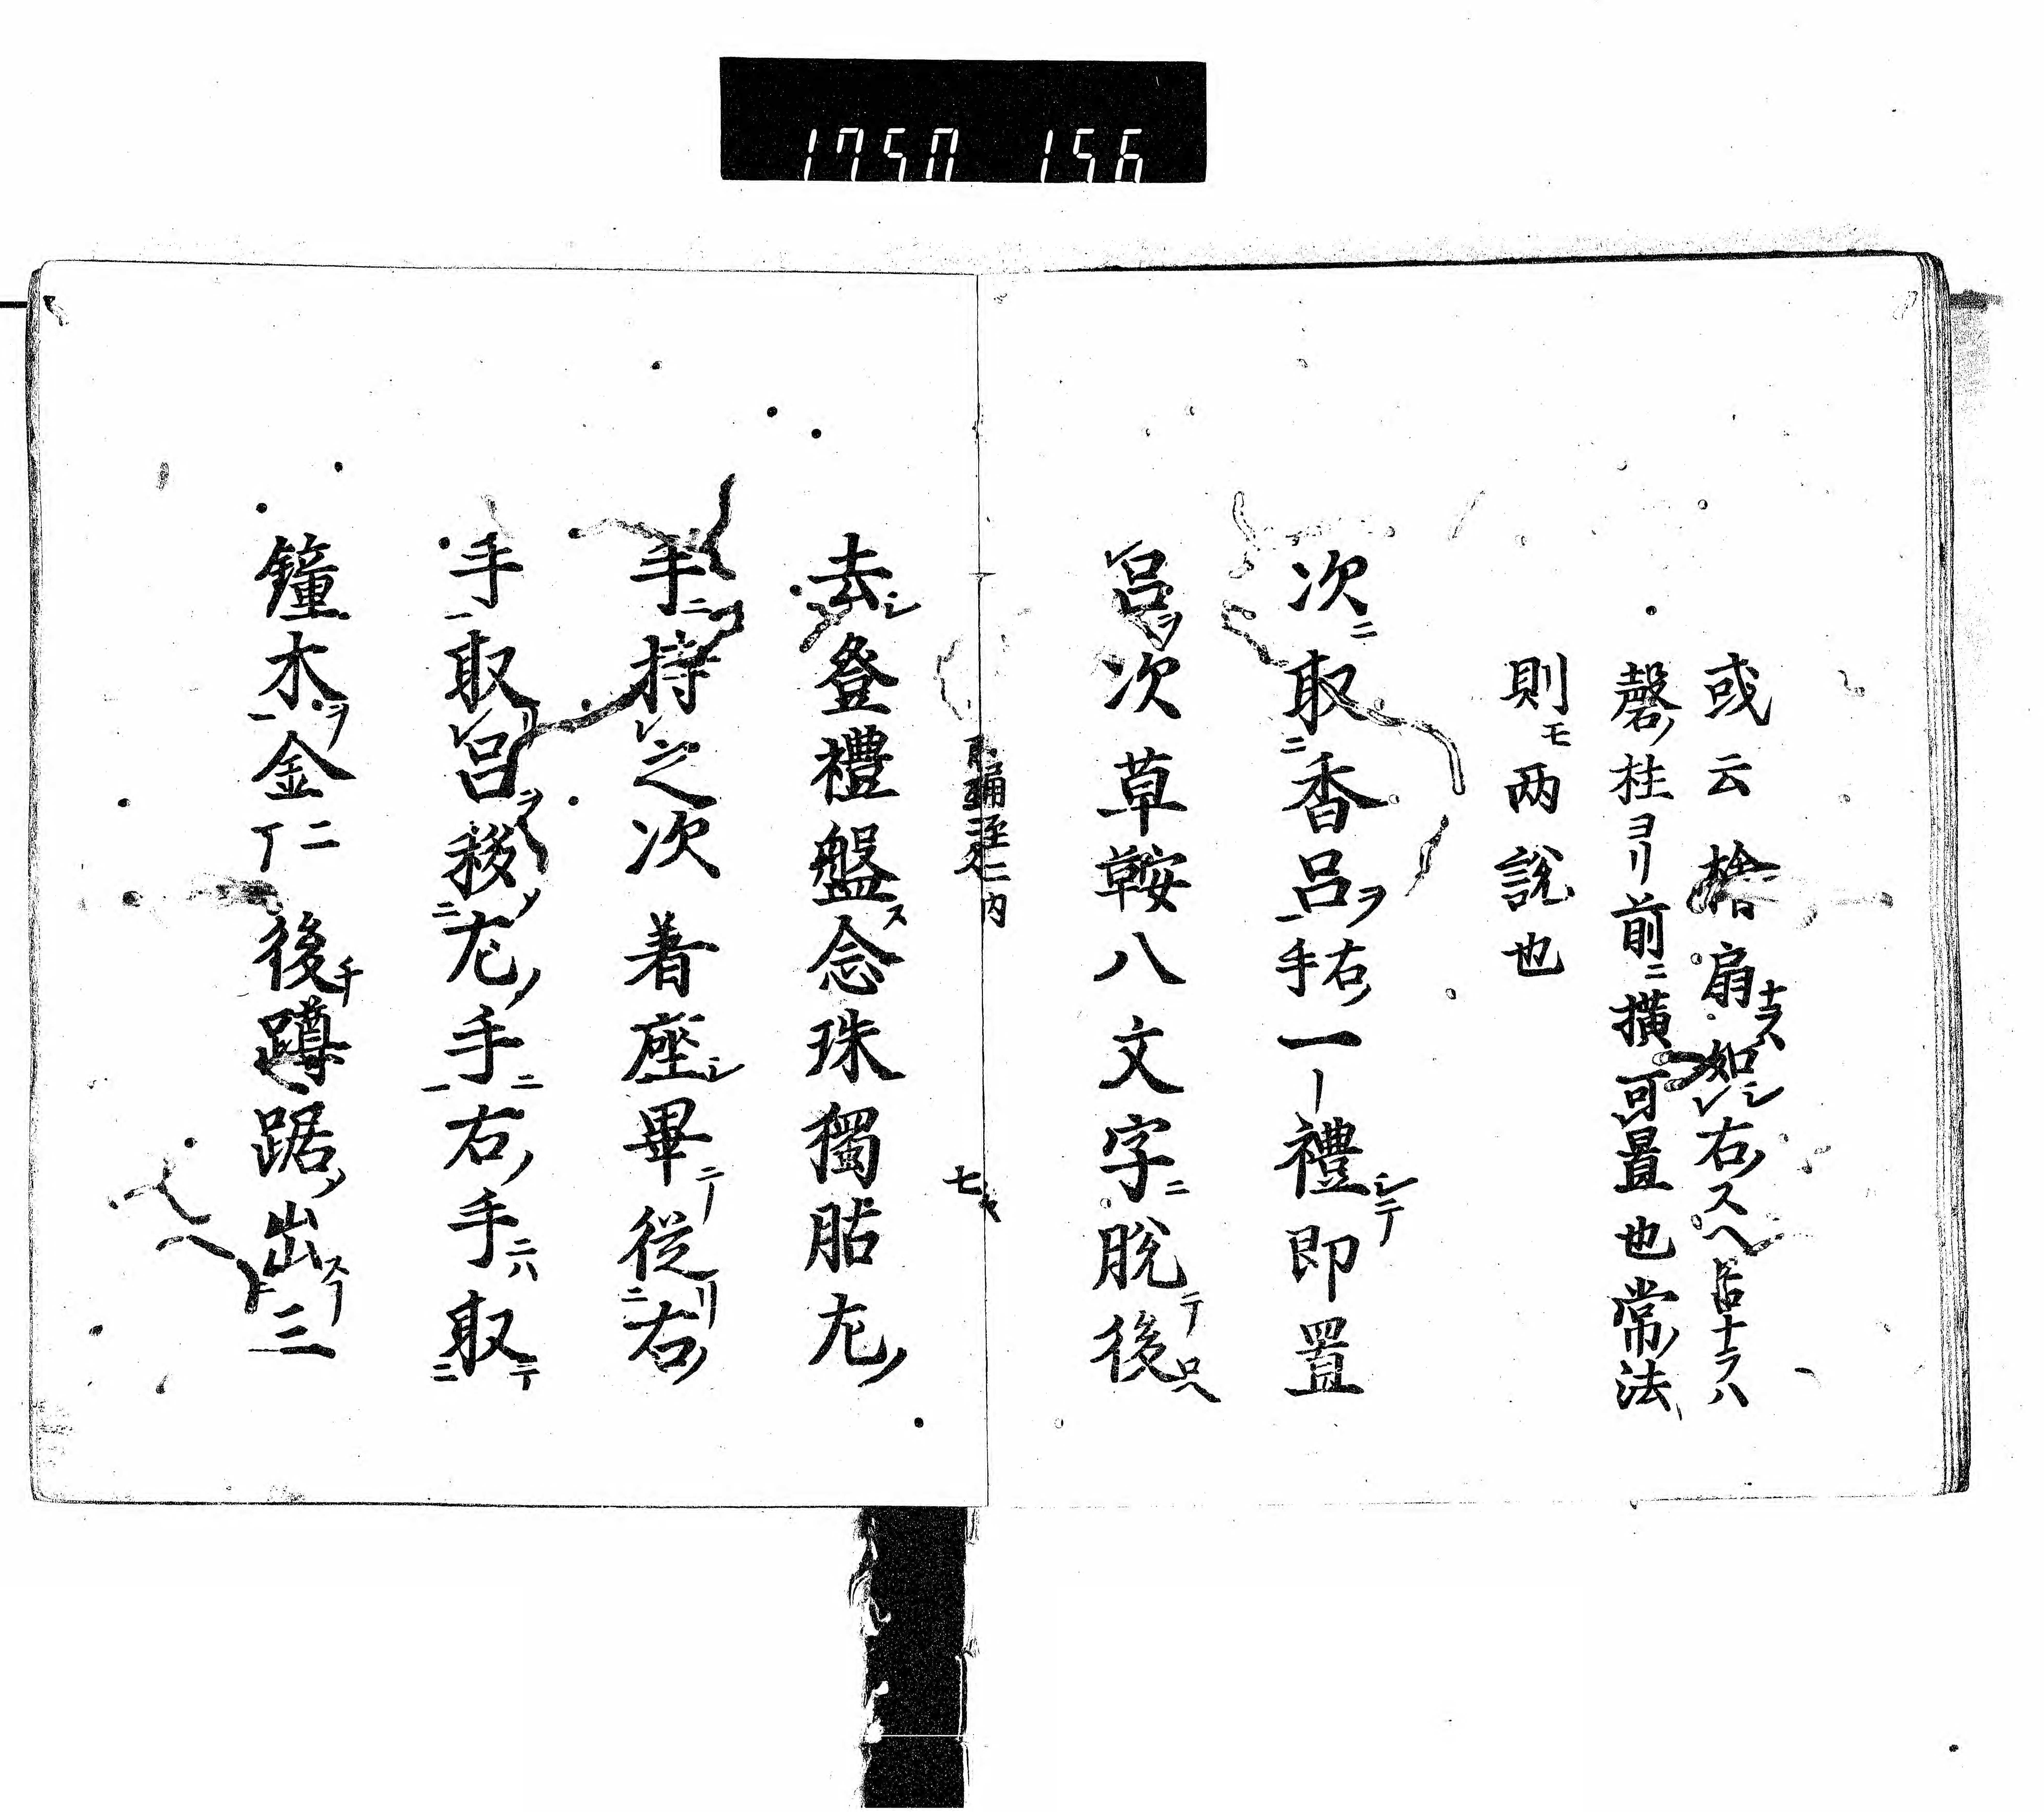 1750 156
或云檜扇ナラハ如シレ右ノスヘ居ナラハ
磬ノ柱ヨリ前ニ横可置也常ノ法
則モ両説也
次ニ取二香呂ヲ一右ノ手一ー禮シテ即置
レ呂ヲ次草鞍八文字ニ脱テ後
去シ登禮盤ス念珠獨胋九ノ
手ニ持レ之次着座シ畢テ従二右ノ
手一取レ呂ヲ移ノ二九ノ手ニ一右ノ手ニハ取二テ
鐘木ヲ一金二丁後チ蹲踞ノ出スー三
内
七